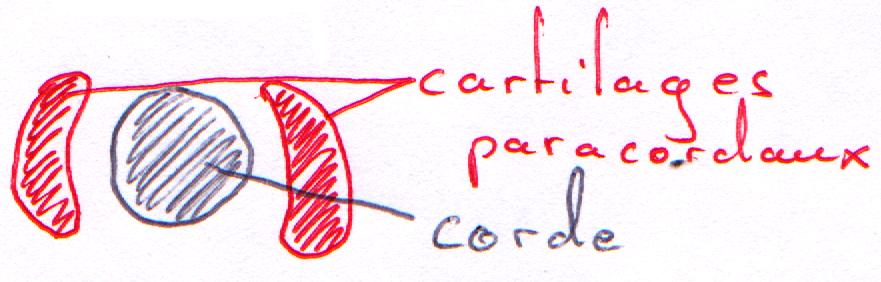 cartilages
paracordaux
corde